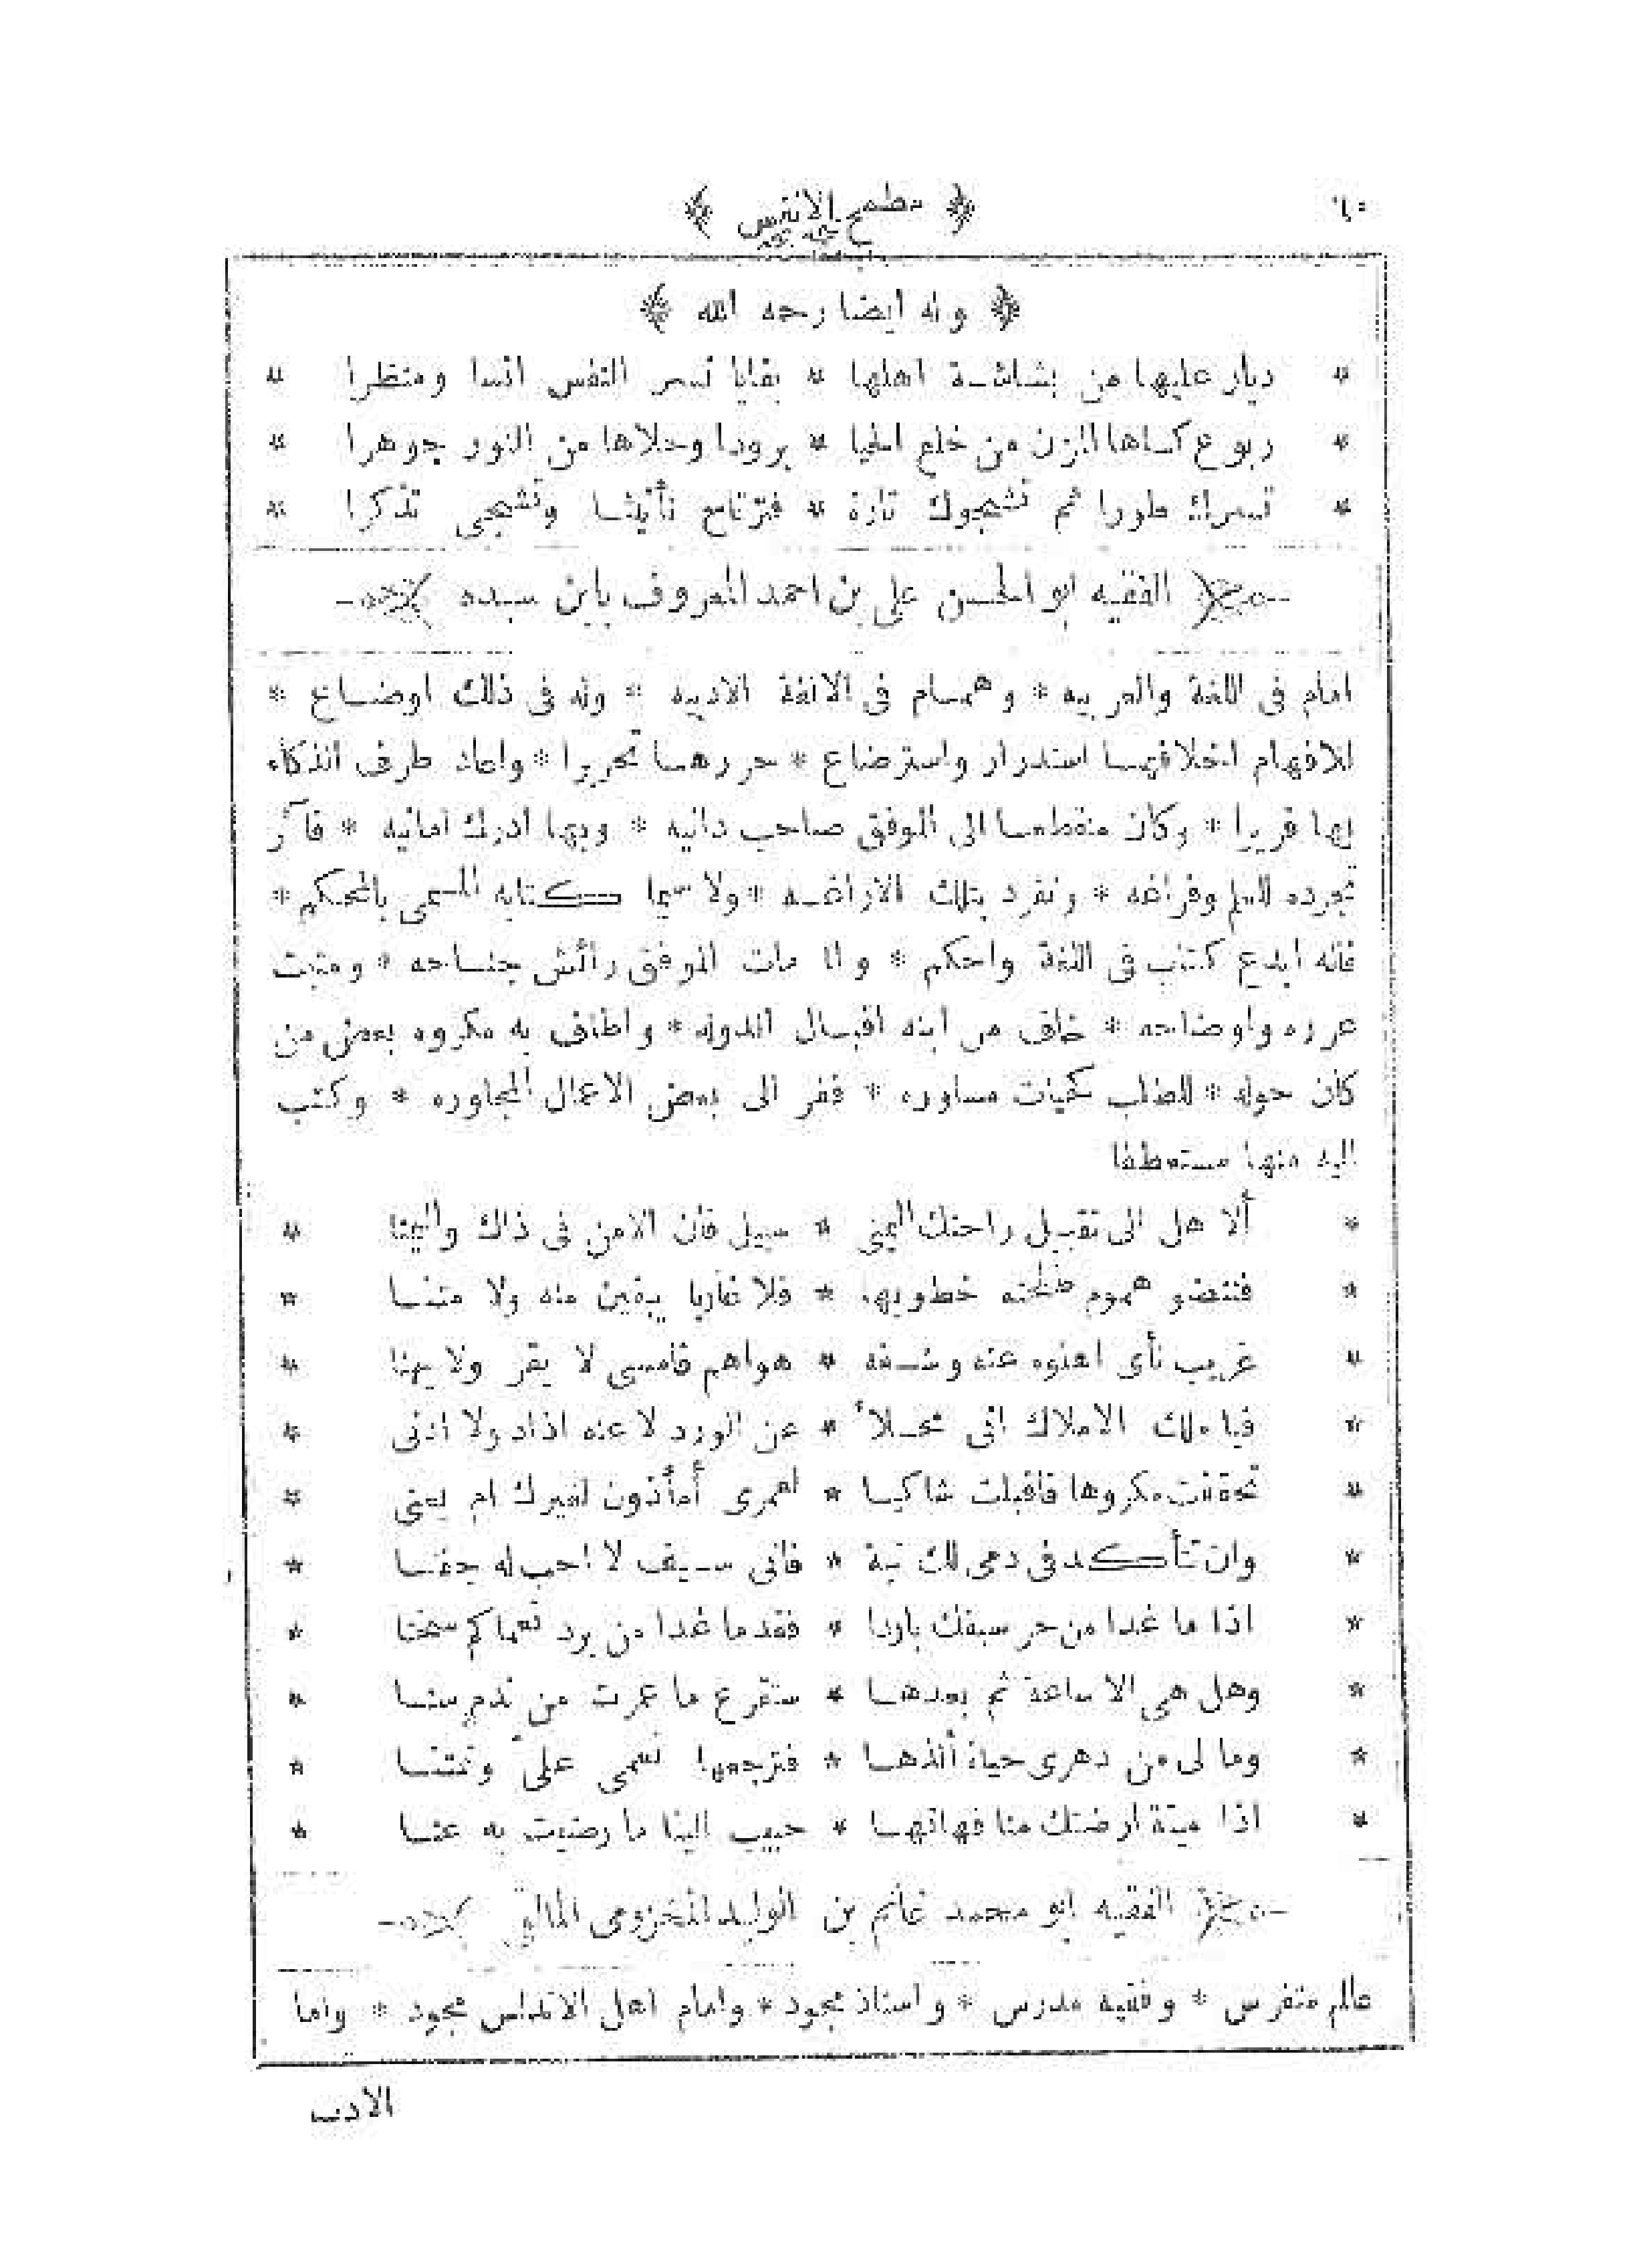 ٦٠ ﴿ مطمح الانفس ﴾
﴿ وله ايضا رحمه الله ﴾
* ديار عليها من بشاشة اهلها * بقايا تسر النفس انسا ومنظرا *
* ربوع كساها المزن من خلع الحيا * برودا وحلاها من النور جوهرا *
* تسرك طورا ثم تشجوك تارة * فترتاح تأنيسا وتشجى تذكرا *
الفقيه ابو الحسن على بن احمد المعروف بابن سيده
امام فى اللغة والعربيه * وهمام فى الانفة الادبيه * وله فى ذلك اوضاع *
للافهام اخلافها استدرار واسترضاع * حررها تحريرا * واعاد طرف الذكاء
بها قريرا * وكان منقطعا الى الموفق صاحب دانيه * وبها ادرك امانيه * فآثر
تجرده للعلم وفراغه * وتفرد بتلك الاراغه * ولا سيما كتابه المسمى بالمحكم *
فانه ابدع كتاب فى اللغة واحكم * ولما مات الموفق رائش جناحه * ومثبت
غرره واوضاحه * خاف من ابنه اقبال الدوله * واطاف به مكروه بعض من
كان حوله * للطلب كحيات مساوره * ففر الى بعض الاعمال المجاوره * وكتب
اليه منها مستعطفا
* ألا هل الى تقبيل راحتك اليمنى * سبيل فان الامن فى ذاك واليمنا *
* فتنضو هموم طلحته خطوبها * فلا غاربا يبقين منه ولا متنا *
* غريب نأى اهلوه عنه وشفه * هواهم فامسى لا يقر ولا يهنا *
* فيا ملك الاملاك انى محلأ * عن الورد لا عنه اذاد ولا ادنى *
* تحققت مكروها فاقبلت شاكيا * لعمرى أمأذون لغيرك ام يعنى *
* وان تتأكد فى دمى لك نية * فانى سيف لا احب له جفنا *
* اذا ما غدا من حر سيفك باردا * فقدما غدا من برد نعماكم سخنا *
* وهل هى الا ساعة ثم بعدها * ستقرع ما عمرت من ندم سنا *
* وما لى من دهرى حياة ألذها * فترجعها نعمى علىّ وتمتنا *
* اذا ميتة ارضتك منا فهاتها * حبيب الينا ما رضيت به عنا *
الفقيه ابو محمد غانم بن الوليد المخزومى المالقى
عالم متفرس * وفقيه مدرس * واستاذ مجود * وامام اهل الاندلس مجود * واما
الادب